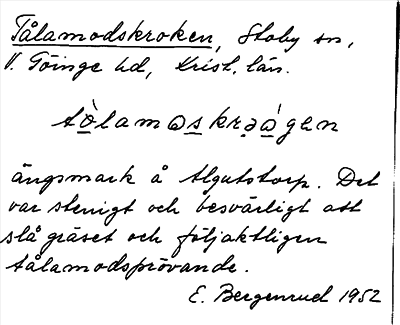 Tålamodskroken, Stoby sn,
V. Göinge hd, Krist. län.
tòlamɷs krəɷ̀gen
ängsmark å Algutstorp. Det
var stenigt och besvärligt att
slå gräset och följaktligen
tålamodsprövande.
E. Bergenrud 1952